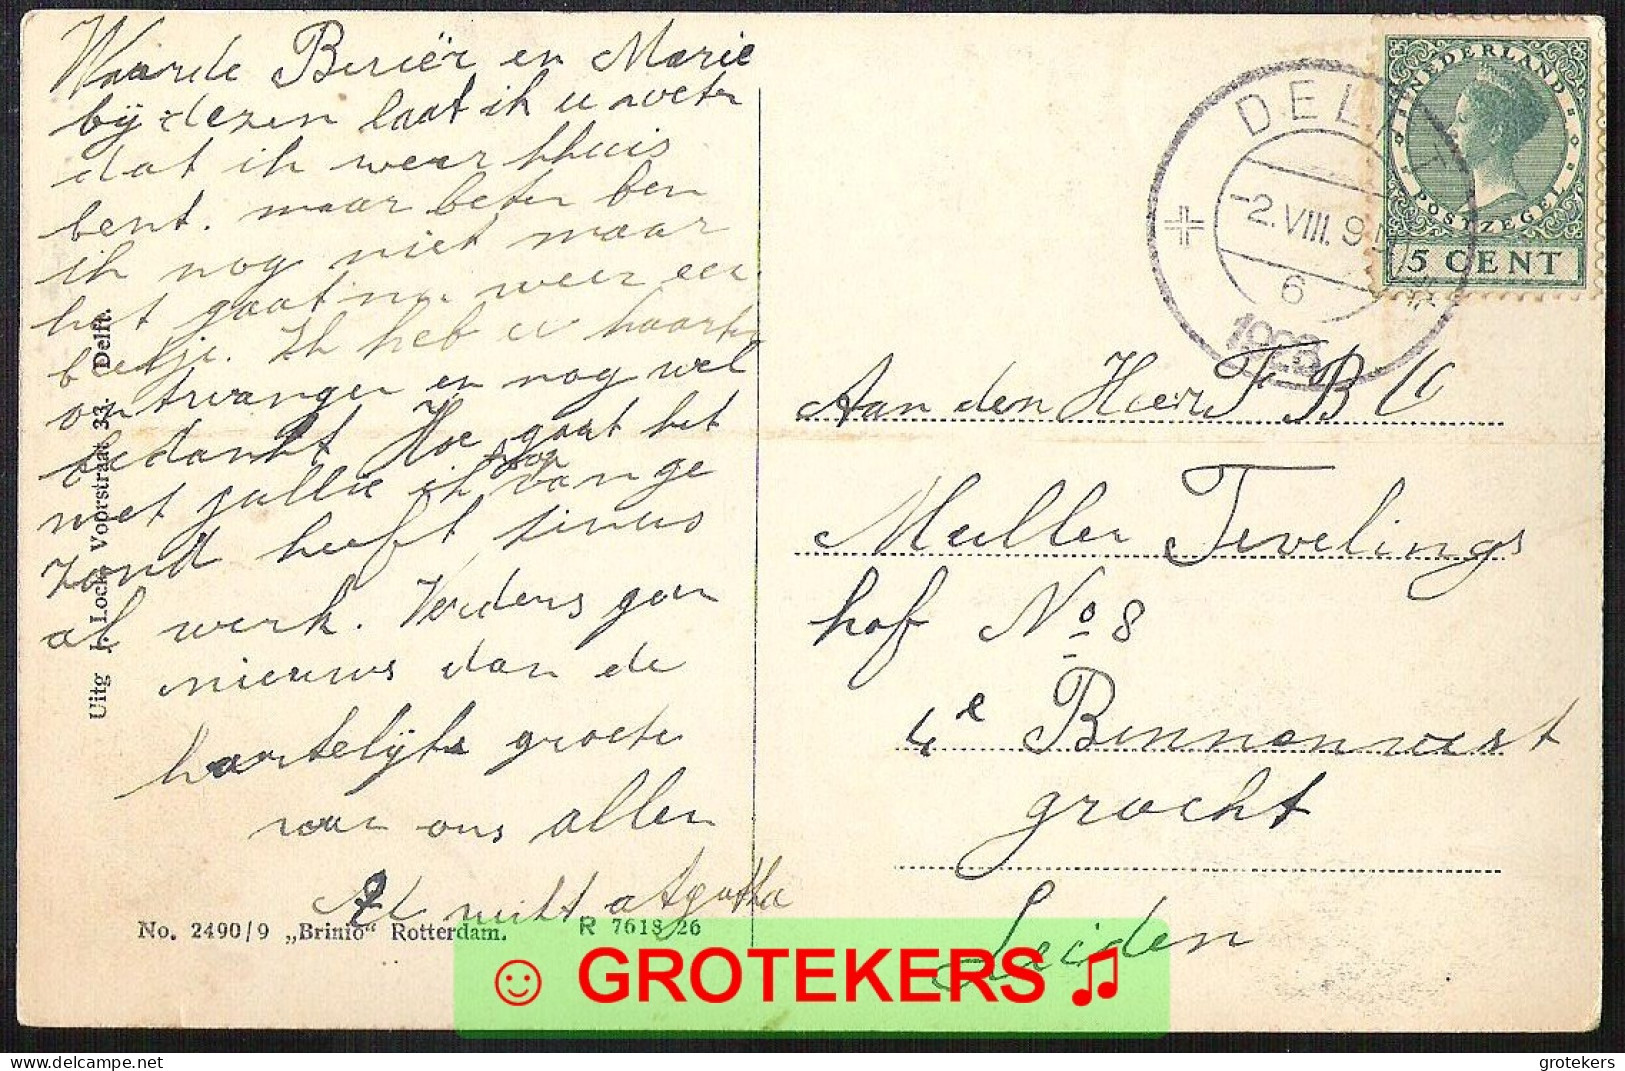 Waarde Berier en Marie
bij dezen laat ik u weten
dat ik weer thuis
bent. maar beter ben
ik nog niet maar
het gaat nu weer een
beetje. Ik heb u kaarten
ontvangen en nog wel
bedankt Hoe gaat het
met jullie ik
zond heeft
al werk. Verders gan
nieuws dan de
hartelijke groete
van ons allen
Agatha
Uitg J. Lock, Voorstraat 33. Delft.
No. 2490/9 „Brinio" Rotterdam.
R 7618 26
NEDERLAND
POSTZEGEL
5 CENT
DELFT
-2.VIII. 9
6
1928
Aan den Heer F B
Muller Tevelings
hof No 8
4e Binnenvest
gracht
Leiden
☺ GROTEKERS ♫
grotekers